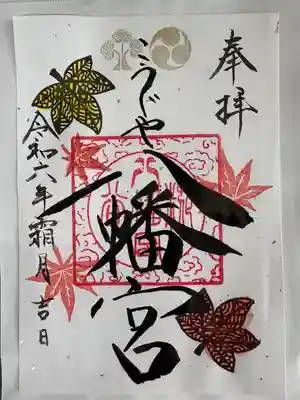 奉拝
こうじや
八幡宮
令和六年霜月吉日